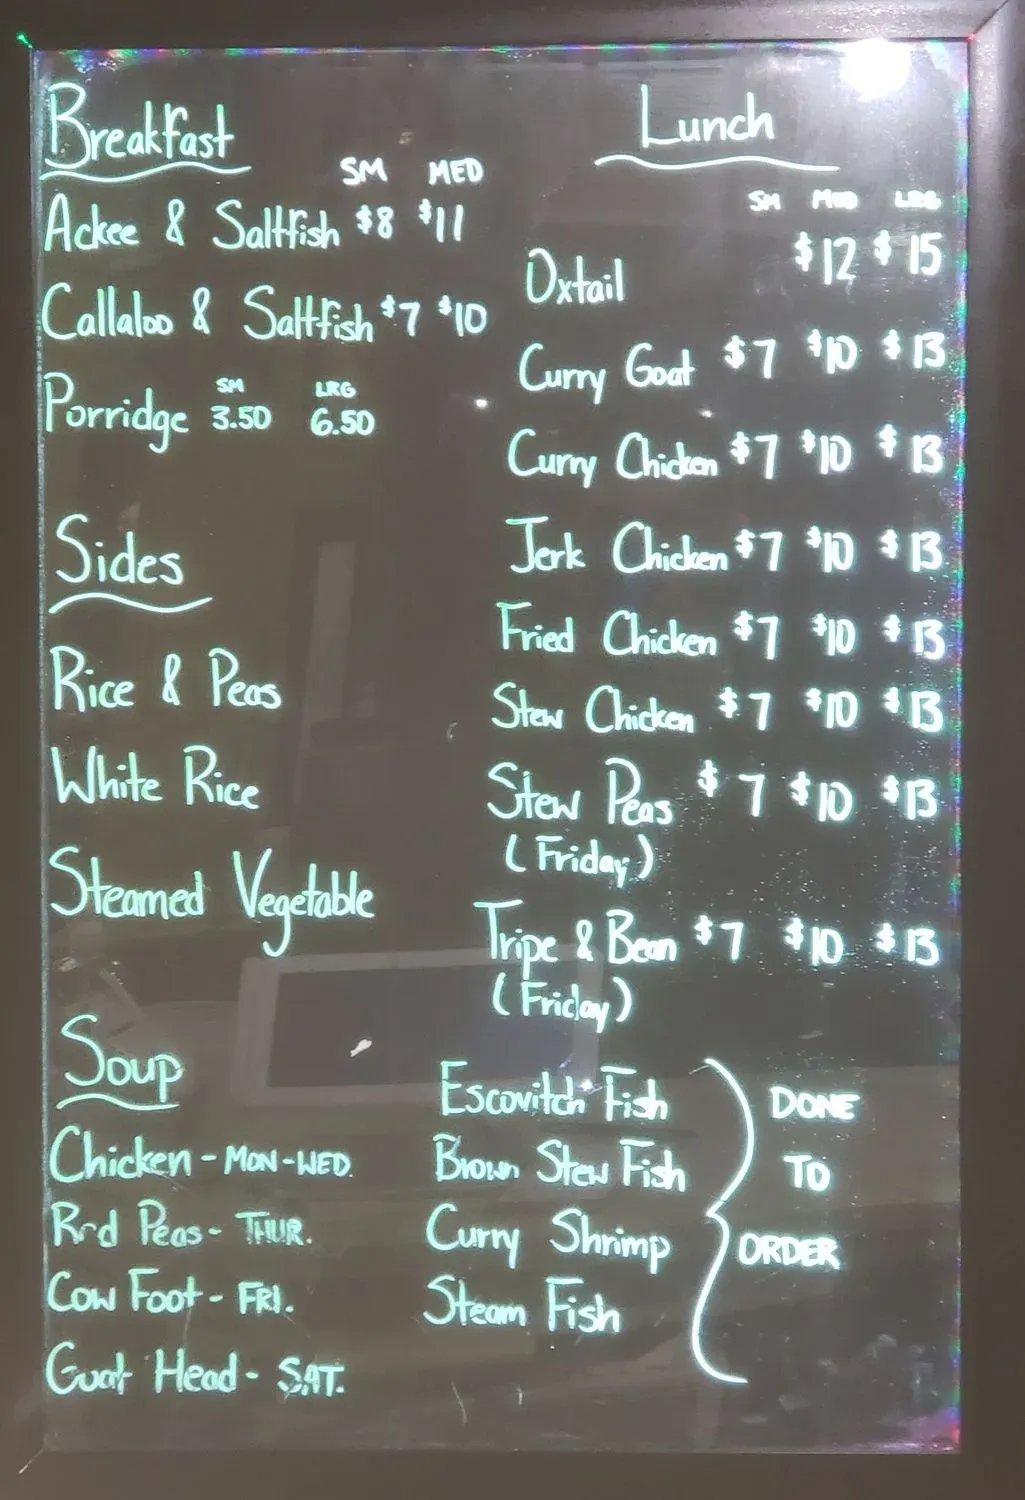 Breakfast
SM MED
Ackee & Saltfish $8 $11
Callaloo & Saltfish $7 $10
SM LRG
Porridge 3.50 6.50
Sides
Rice & Peas
White Rice
Steamed Vegetable
Soup
Chicken - MON-WED.
Red Peas - THUR.
Cow Foot - FRI.
Goat Head - SAT.
Lunch
SM MED LRG
Oxtail $12 $15
Curry Goat $7 $10 $13
Curry Chicken $7 $10 $13
Jerk Chicken $7 $10 $13
Fried Chicken $7 $10 $13
Stew Chicken $7 $10 $13
Stew Peas $7 $10 $13
(Friday)
Tripe & Bean $7 $10 $13
(Friday)
Escovitch Fish
Brown Stew Fish
Curry Shrimp
Steam Fish
DONE
TO
ORDER